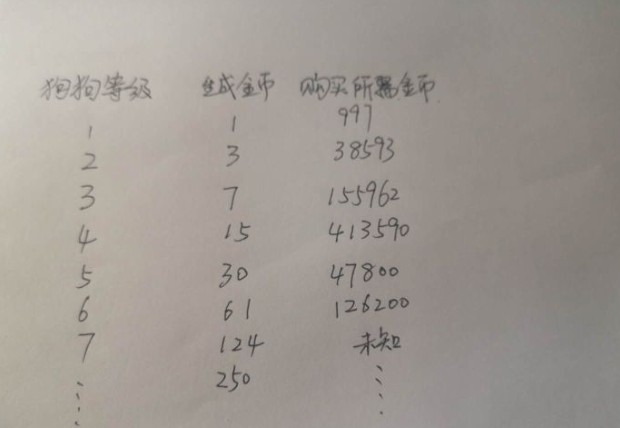 狗狗等级 生成金币 购买所需金币
1 1 997
2 3 38593
3 7 155962
4 15 413590
5 30 47800
6 61 126200
7 124 未知
⋮ 250 ⋮